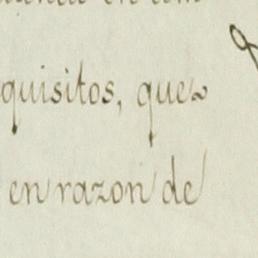 quisitos, que
en razon de